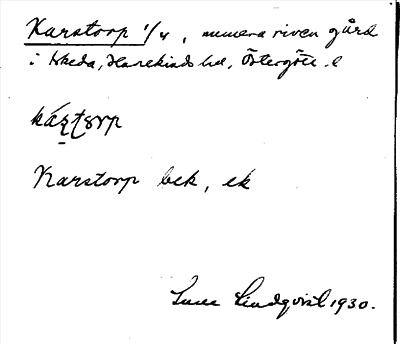 Karstorp 1/4, numera riven gård
i Skeda, Hanekinds hd, Östergötl. l
Karstorp bek, ek
Sune Lindqvist 1930.